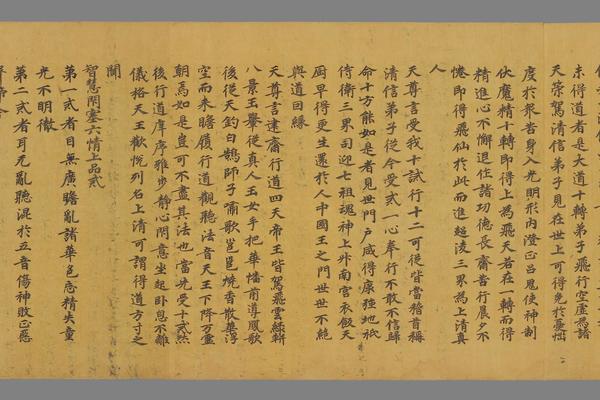 未得道者是大道十轉弟子飛行空虛為諸
天策駕清信弟子見在世上可得免於憂惱
度於眾苦身入光明形內澄正召鬼使神制
伏魔精十轉即得上為飛天若在一轉而得
精進心不懈退作諸功德長齋苦行晨夕不
惓即得飛仙於此而進超淩三界為上清真
人
天尊言受我十試行十二可從皆當稽首稱
清信弟子從今受戒一心奉行不敢不信歸
命十方能如是者見世門戶咸得康強地祇
侍衛三界司迎七祖魂神上升南宮衣飯天
廚早得更生還於人中國王之門世世不絕
與道因緣
天尊言建齋行道四天帝王皆駕飛雲綠軿
八景玉輿從真人玉女手把華幡前導鳳歌
後從天鈞白鵠師子嘯歌邕邕燒香散華浮
空而來瞻履行道觀聽法音天王下降万靈
朝焉如是豈可不盡其法也當先受十戒然
後行道庠序雅步靜心閇意坐起卧息不離
儀格天王歡悅列名上清可謂得道方寸之
關
智慧閇塞六情上品戒
第一戒者目無廣瞻亂諸華色忘精失童
光不明徹
第二戒者耳无亂聽混於五音傷神敗正惡